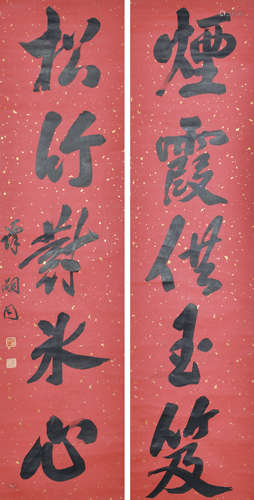 煙霞供玉笈
松竹對冰心
譚嗣同